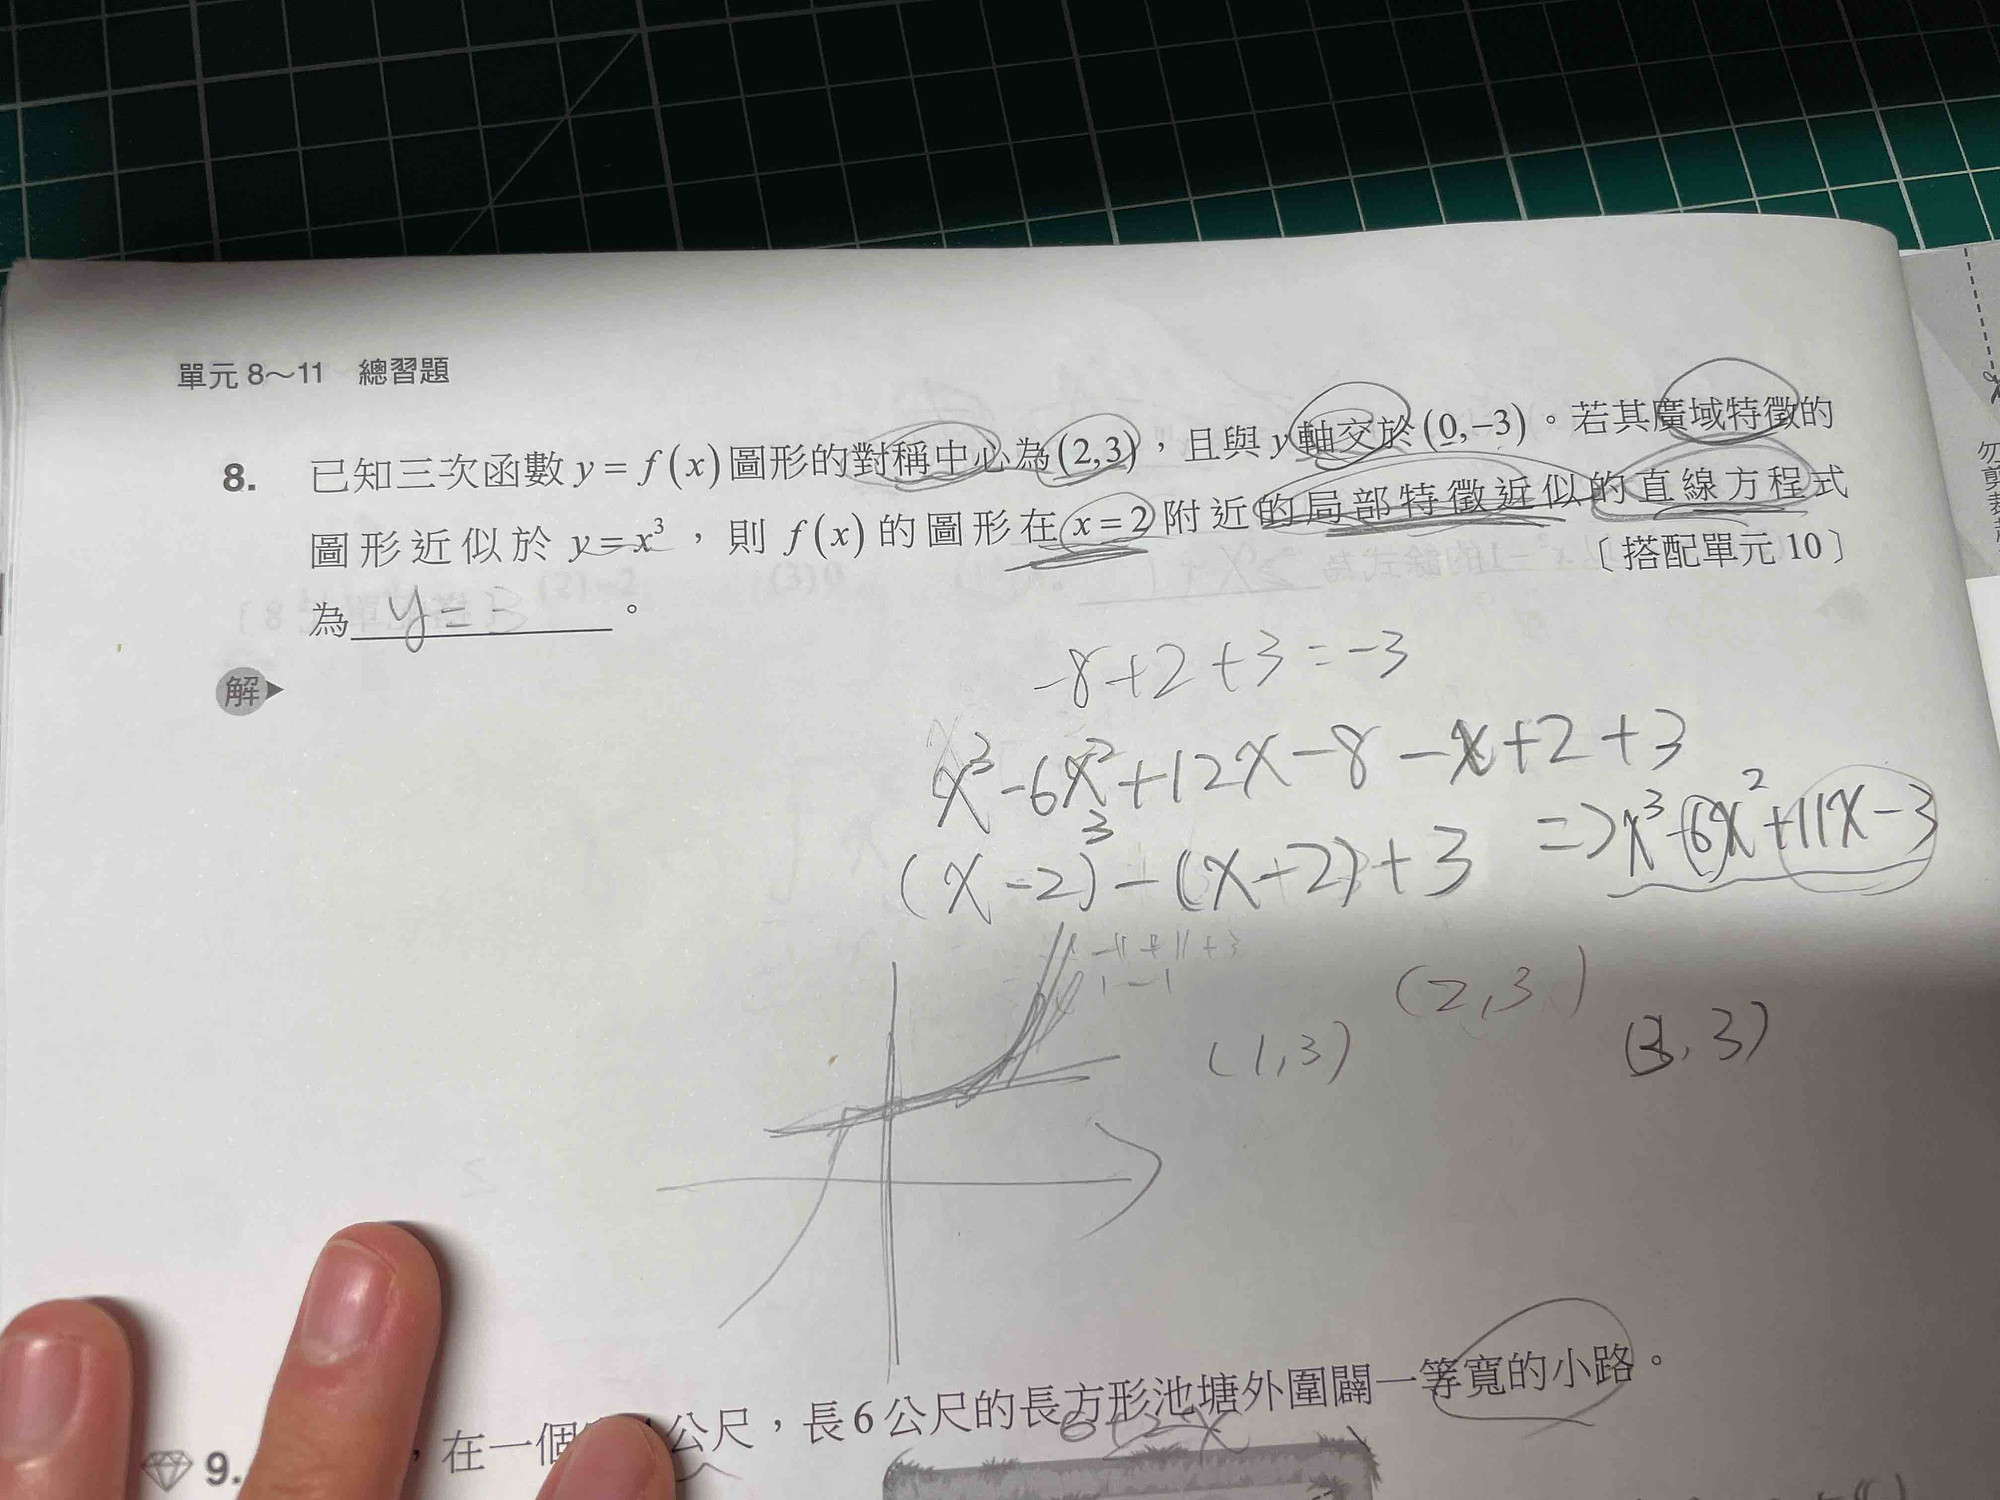 單元 8～11 總習題
8. 已知三次函數 y = f(x) 圖形的對稱中心為 (2,3)，且與 y 軸交於 (0,−3)。若其廣域特徵的
圖形近似於 y = x³，則 f(x) 的圖形在 x = 2 附近的局部特徵近似的直線方程式
為 y = 。
〔搭配單元 10〕
解
-8+2+3=-3
x³-6x²+12x-8-x+2+3
=>x³-6x²+11x-3
(x-2)³-(x-2)+3
(2,3)
(1,3)
(3,3)
9. ，在一個 公尺，長 6 公尺的長方形池塘外圍闢一等寬的小路。
勿剪裁